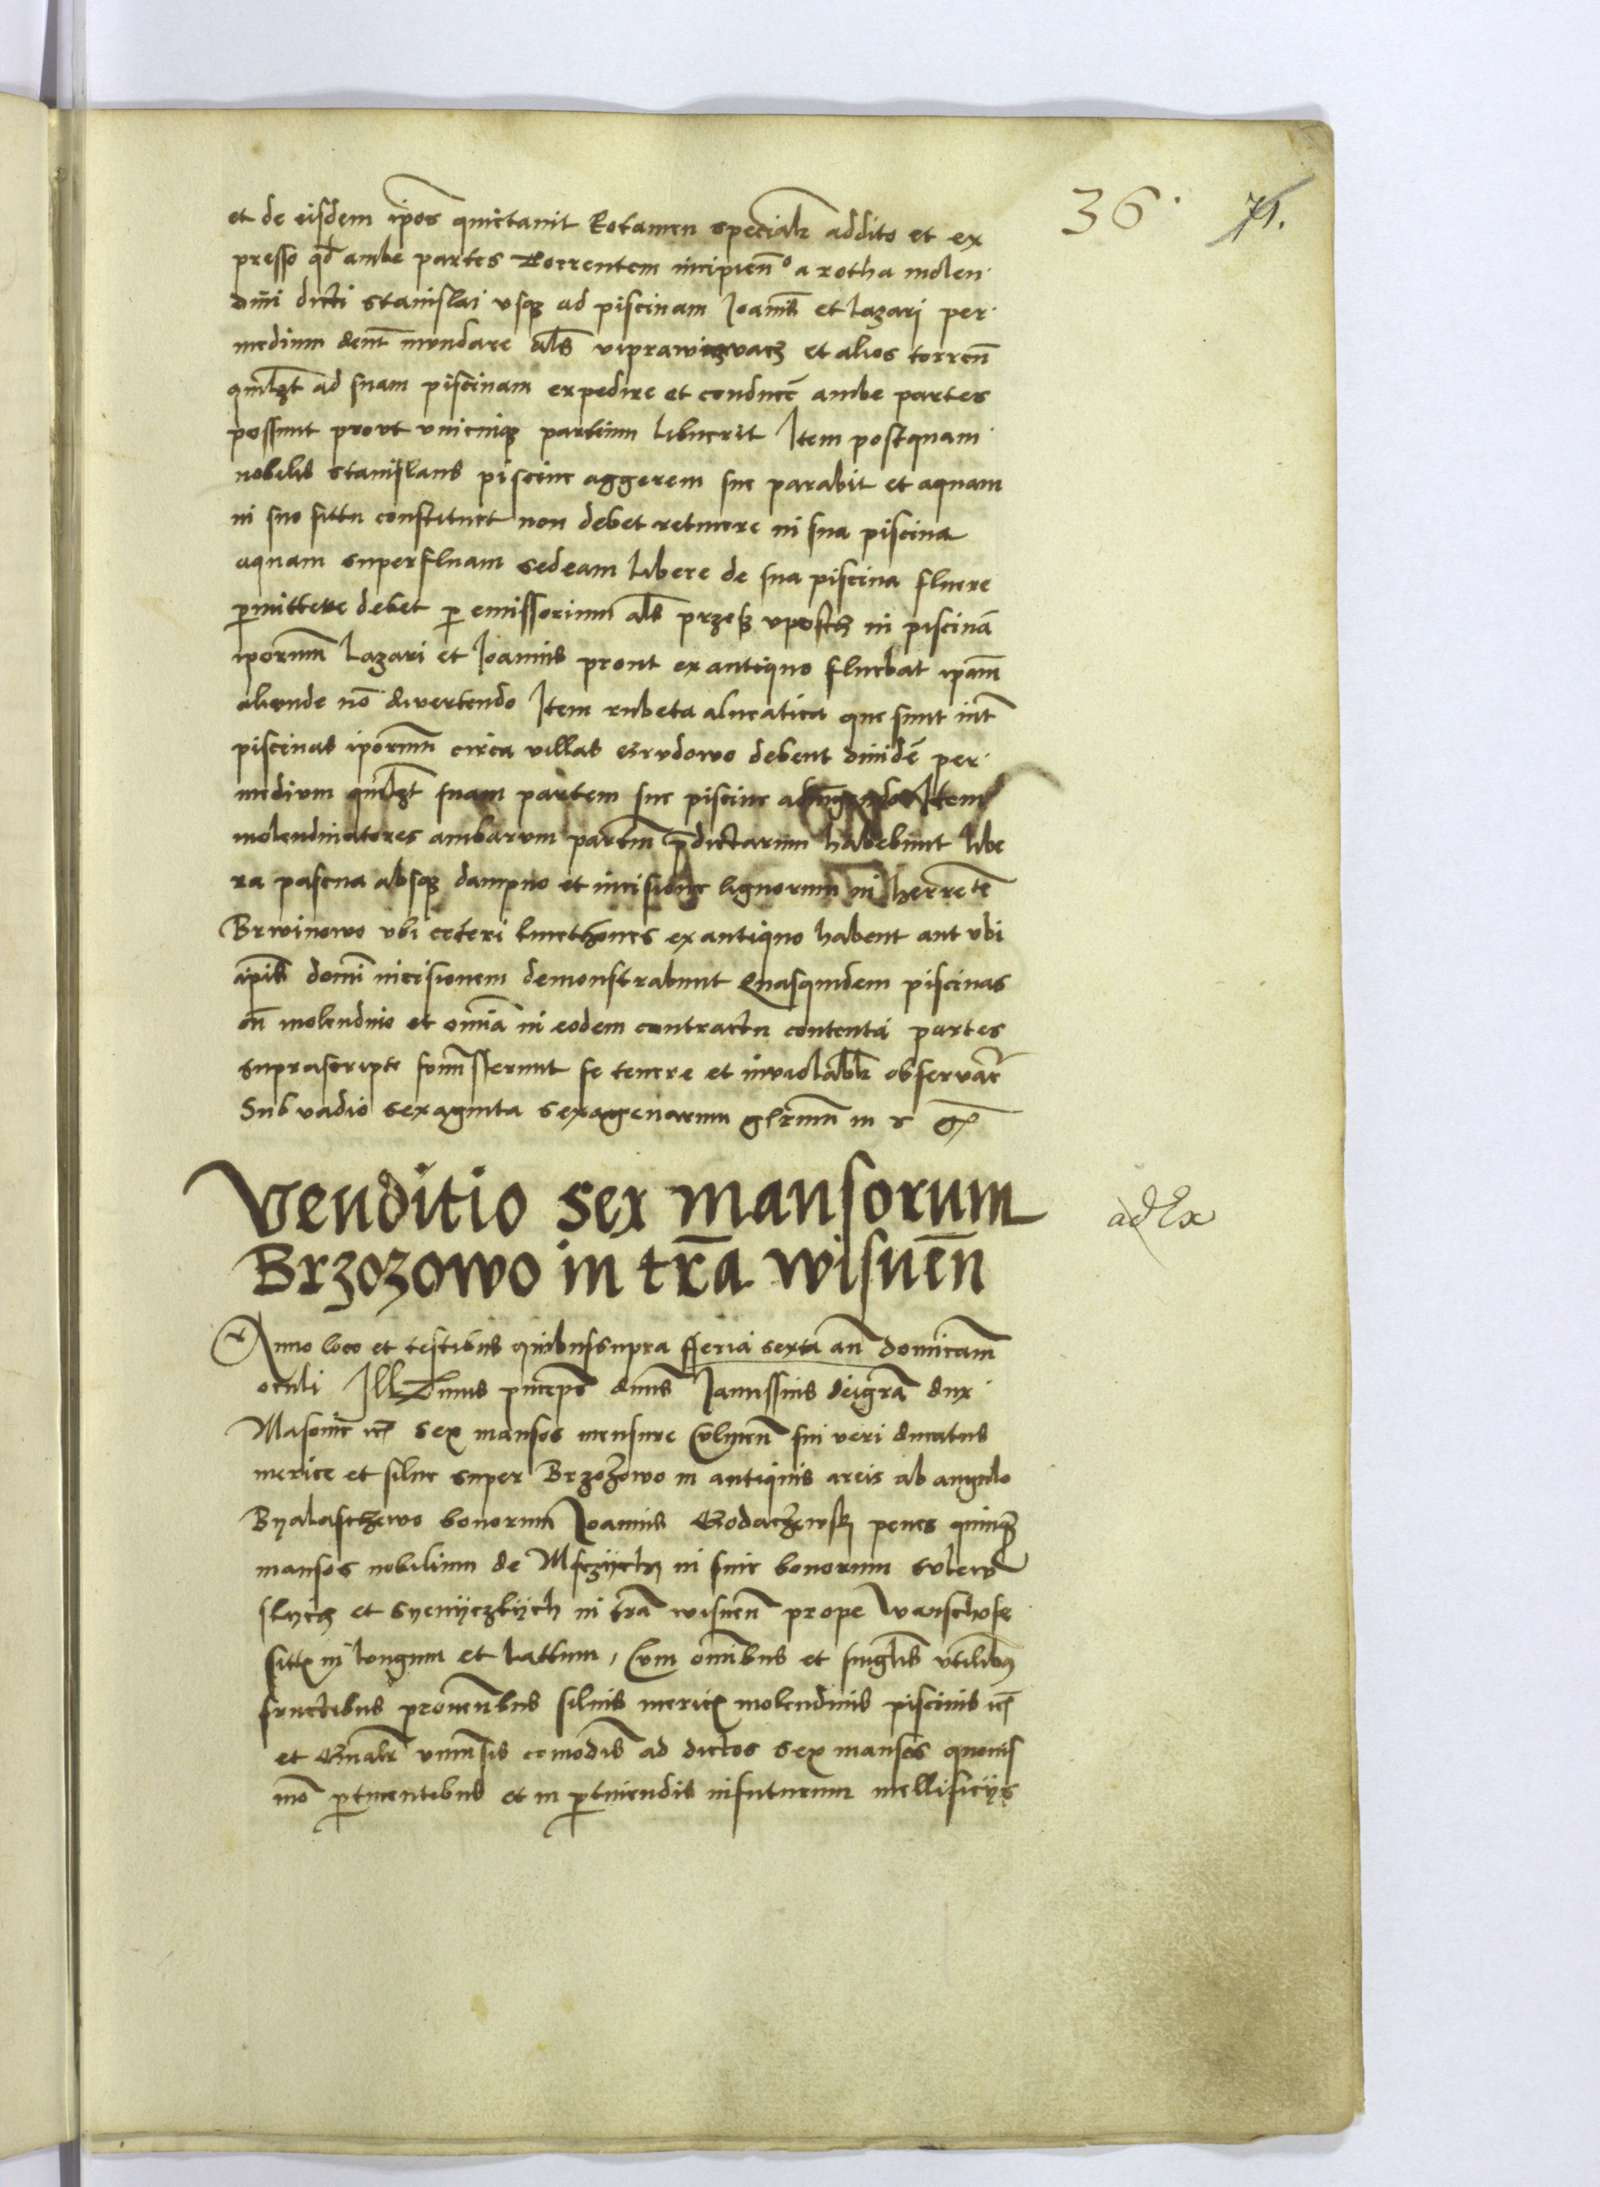 36. 71.
et de eisdem ip̄os quietavit Eotamen specialr̄ addito et ex
presso qd̄ ambe partes torrentem incipien̄ a rotha molen
dini dicti Stanislai vsq; ad piscinam Joan̄is et Lazari per
medium debn̄t mundare al̄s viprawczvacz et alios torren̄
quilzt̄ ad suam piscinam expedire et conducer̄ ambe partes
possunt prout vnicuiq; partium libuerit Item postquam
nobilis Stanislaus piscine aggerem sue parabit et aquam
in suo situ constituet non debet retinere in sua piscina
aquam superfluam sed eam libere de sua piscina fluere
p̄mittere debet p̄ emissorium al̄s przesz vposth in piscinā
ip̄orum Lazari et Joannis prout ex antiquo fluebat ip̄am
aliunde nō divertendo Item rubeta alneatica que sunt int̄
piscinas ip̄orum circa villas Grudowo debent dividē per
medium quilzt̄ suam partem sue piscine adiungendo Item
molendinatores ambarum partium p̄dictarum habebunt libe
ra pascua absq; dampno et incisione lignorum in herē te
Brwinowo vbi ceteri kmethones ex antiquo habent aut vbi
ip̄is domī incisionem demonstrabunt Quasquidem piscinas
cū molendino et omīa in eodem contractu contenta partes
suprascripte submiserunt se tenere et inviolabilr̄ observar̄
Sub vadio sexaginta sexagenarum glīum in r g̅
Venditio sex mansorum
Brzozowo in tr̄a wisnen̄
ad Ex
Anno loco et testibus quibus supra fferia sexta an̄ domicam̄
oculi Ill Dnūs princeps dnūs Janussius dei gr̄a dux
Masovie etc̄ sex mansos mensure Culmen̄ sui veri ducatus
merice et silue super Brzozowo in antiquis areis ab angulo
Byalaschewo bonorum Joannis Godaczewsky penes quinq;
mansos nobilium de Msczijch in fine bonorum
et Syenijczkijch in tr̄a wisnen̄ prope Wanschosse
sitt in longum et lattum, Cum omībus et singlīs vtilibus
fructibus provenībus siluis mericis molendinis piscinis etc̄
et Gnalr̄ vniūsis comodis ad dictos sex mansos quouis
mō p̄tinentibus et in p̄tinendis in futurum mellificijs